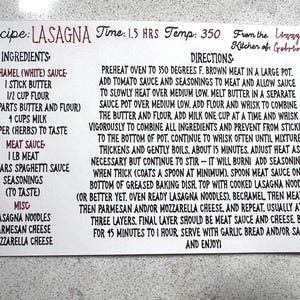 cipe: LASAGNA Time: 1.5 HRS Temp: 350 From the
Kitchen of
INGREDIENTS:
HAMEL (WHITE) SAUCE:
1 STICK BUTTER
1/2 CUP FLOUR
PARTS BUTTER AND FLOUR)
4 CUPS MILK
PER (HERBS) TO TASTE
MEAT SAUCE:
1 LB MEAT
ARS SPAGHETTI SAUCE
SEASONINGS
(TO TASTE)
MISC:
ASAGNA NOODLES
RMESAN CHEESE
ZZARELLA CHEESE
DIRECTIONS:
PREHEAT OVEN TO 350 DEGREES F. BROWN MEAT IN A LARGE POT.
ADD TOMATO SAUCE AND SEASONINGS TO MEAT AND ALLOW SAUCE
TO SLOWLY HEAT OVER MEDIUM LOW. MELT BUTTER IN A SEPARATE
SAUCE POT OVER MEDIUM LOW. ADD FLOUR AND WHISK TO COMBINE
THE BUTTER AND FLOUR, ADD MILK ONE CUP AT A TIME AND WHISK
VIGOROUSLY TO COMBINE ALL INGREDIENTS AND PREVENT FROM STICKING
TO THE BOTTOM OF POT. CONTINUE TO WHISK OFTEN UNTIL MIXTURE
THICKENS AND GENTLY BOILS, ABOUT 15 MINUTES. ADJUST HEAT AS
NECESSARY BUT CONTINUE TO STIR -- IT WILL BURN! ADD SEASONING
WHEN THICK (COATS A SPOON AT MINIMUM). SPOON MEAT SAUCE ON
BOTTOM OF GREASED BAKING DISH, TOP WITH COOKED LASAGNA NOOD
(OR BETTER YET, OVEN READY LASAGNA NOODLES), BECHAMEL, THEN MEAT
THEN PARMESAN AND/OR MOZZARELLA CHEESE, AND REPEAT, USUALLY AT
THREE LAYERS. FINAL LAYER SHOULD BE MEAT SAUCE AND CHEESE. B
FOR 45 MINUTES TO 1 HOUR. SERVE WITH GARLIC BREAD AND/OR SA
AND ENJOY!